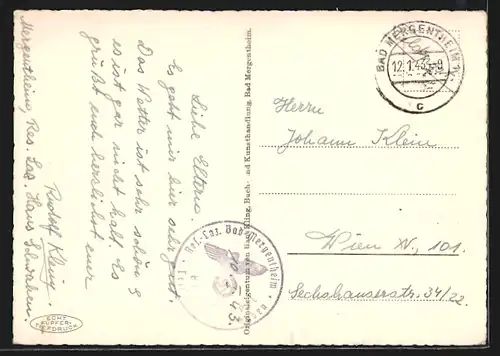 Liebe Eltern.
Es geht mir hier sehr gut.
Das Wetter ist sehr schön &
es ist gar nicht kalt. Es
grüßt und herzlichst euer
Rudolf Klein.
Mergentheim, Res. Laz. Haus Schwaben.
ECHT
KUPFER-
TIEFDRUCK
Originaleigentum von Kling, Buch- und Kunsthandlung, Bad Mergentheim.
Res.-Laz. Bad Mergentheim
BAD MERGENTHEIM 1
12.1.43.-9
c
Herrn
Johann Klein
Wien XV, 101.
Sechshauserstr. 34/22.